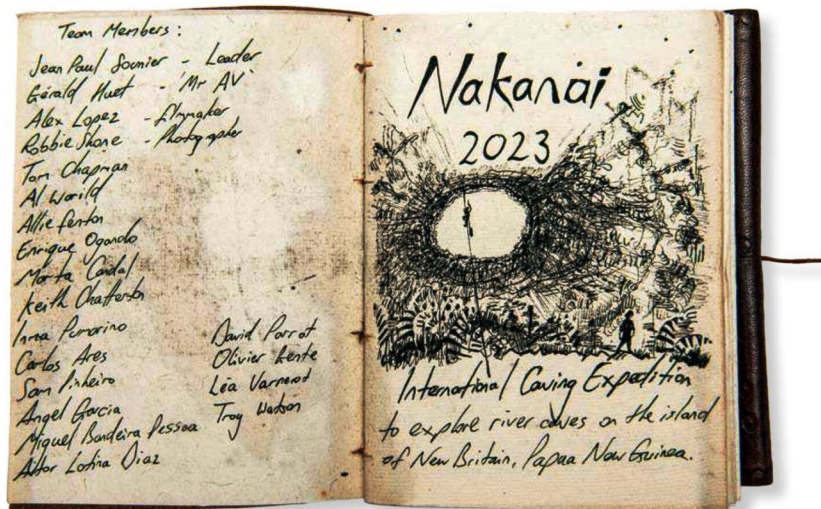 Team Members:
Jean Paul Sounier - Leader
Gérald Huet - 'Mr AV'
Alex Lopez - filmmaker
Robbie Shone - Photographer
Tom Chapman
Al Warild
Allie Fenton
Enrique Ogando
Marta Candal
Keith Chatterton
Inma
Carlos Ares
Sam Pinheiro
Angel Garcia
Miguel Bandeira Pessoa
Aitor Latina Diaz
David Parrot
Olivier
Léa
Troy Watson
Nakanai
2023
International Caving Expedition
to explore river caves on the island
of New Britain, Papua New Guinea.